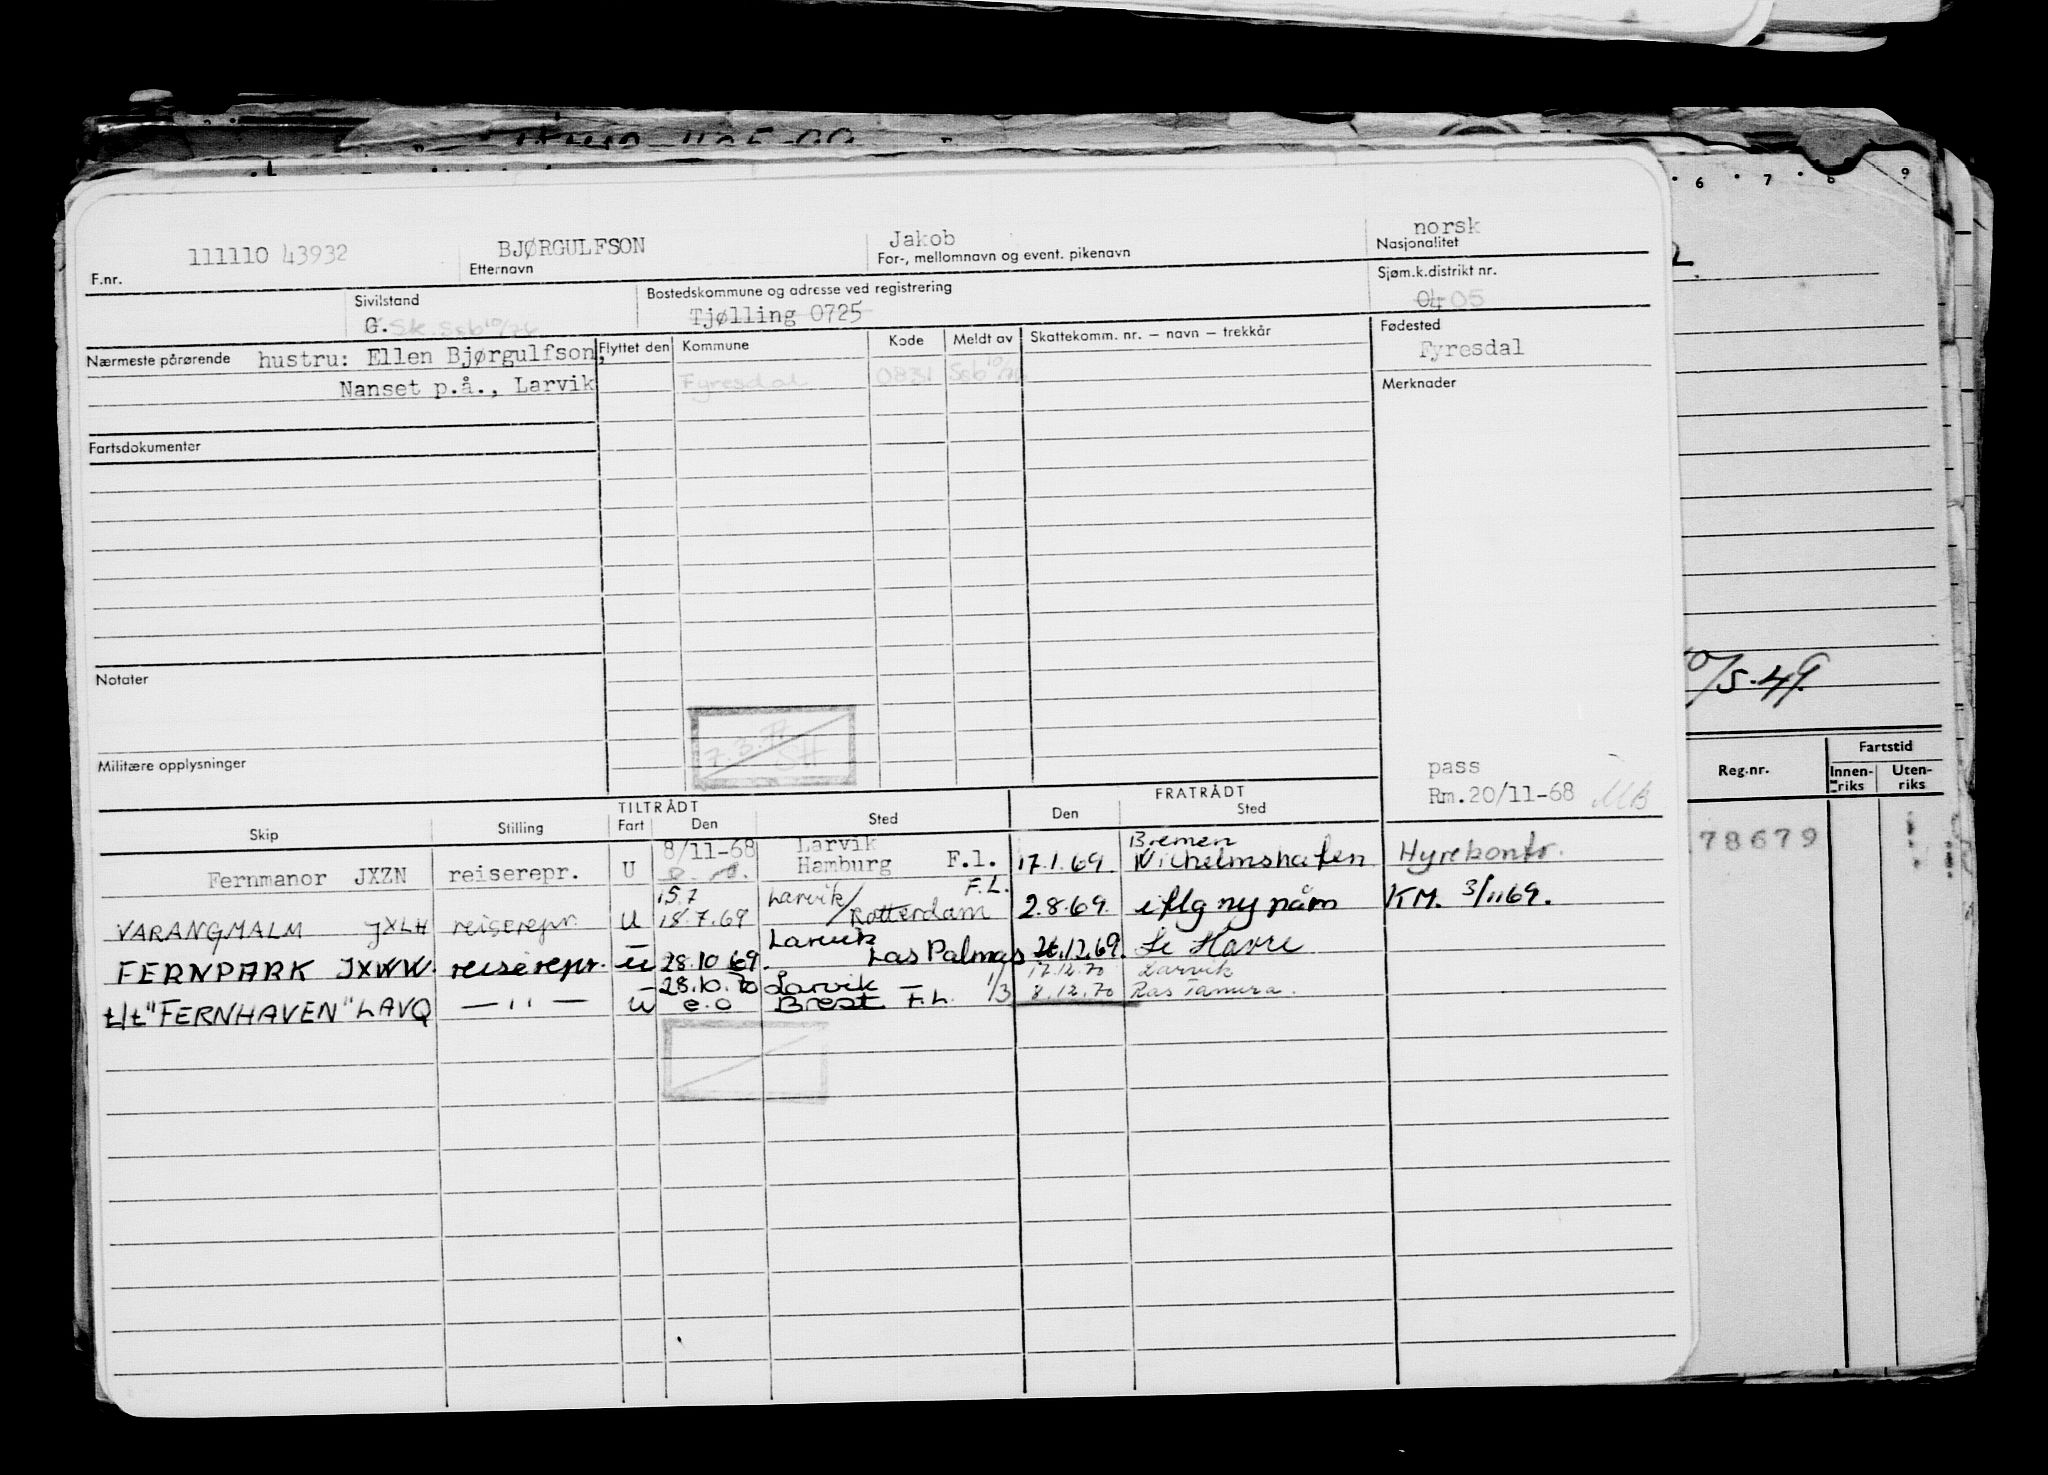 6 7 8 9
norsk
111110 43932 BJØRGULFSON Jakob Nasjonalitet
F.nr. Etternavn For-, mellomnavn og event. pikenavn
Sivilstand Bostedskommune og adresse ved registrering Sjøm.k.distrikt nr.
G. Sk. Ssb 10/76 Tjølling 0725 04 05
Nærmeste pårørende hustru: Ellen Bjørgulfson, Flyttet den Kommune Kode Meldt av Skattekomm. nr. – navn – trekkår Fødested
Fyresdal
Nanset p.å., Larvik Fyresdal 0831 Ssb 10/76 Merknader
Fartsdokumenter
10/5.49.
Notater
7.3.
Militære opplysninger
pass
Rm.20/11-68 MB
Reg.nr. Fartstid
Innenriks Utenriks
TILTRÅDT FRATRÅDT
Skip Stilling Fart Den Sted Den Sted
8/11-68 Larvik Bremen
Fernmanor JXZN reiserepr. U Hamburg F.l. 17.1.69. Wilhelmshafen Hyrekontr.
78679
15.7 Larvik/ F.L.
VARANGMALM JXLH reiserepr. U 18.7.69 Rotterdam 2.8.69. iflg ny påm KM. 3/11 69.
Larvik
FERNPARK JXWW. reiserepr. U 28.10.69. Las Palmas 26.12.69. Le Havre
28.10.70 Larvik – 17.12.70 Larvik
t/t "FERNHAVEN" LAVQ — " — U e.o Brest F.L. 1/3 8.12.70 Ras Tanura.